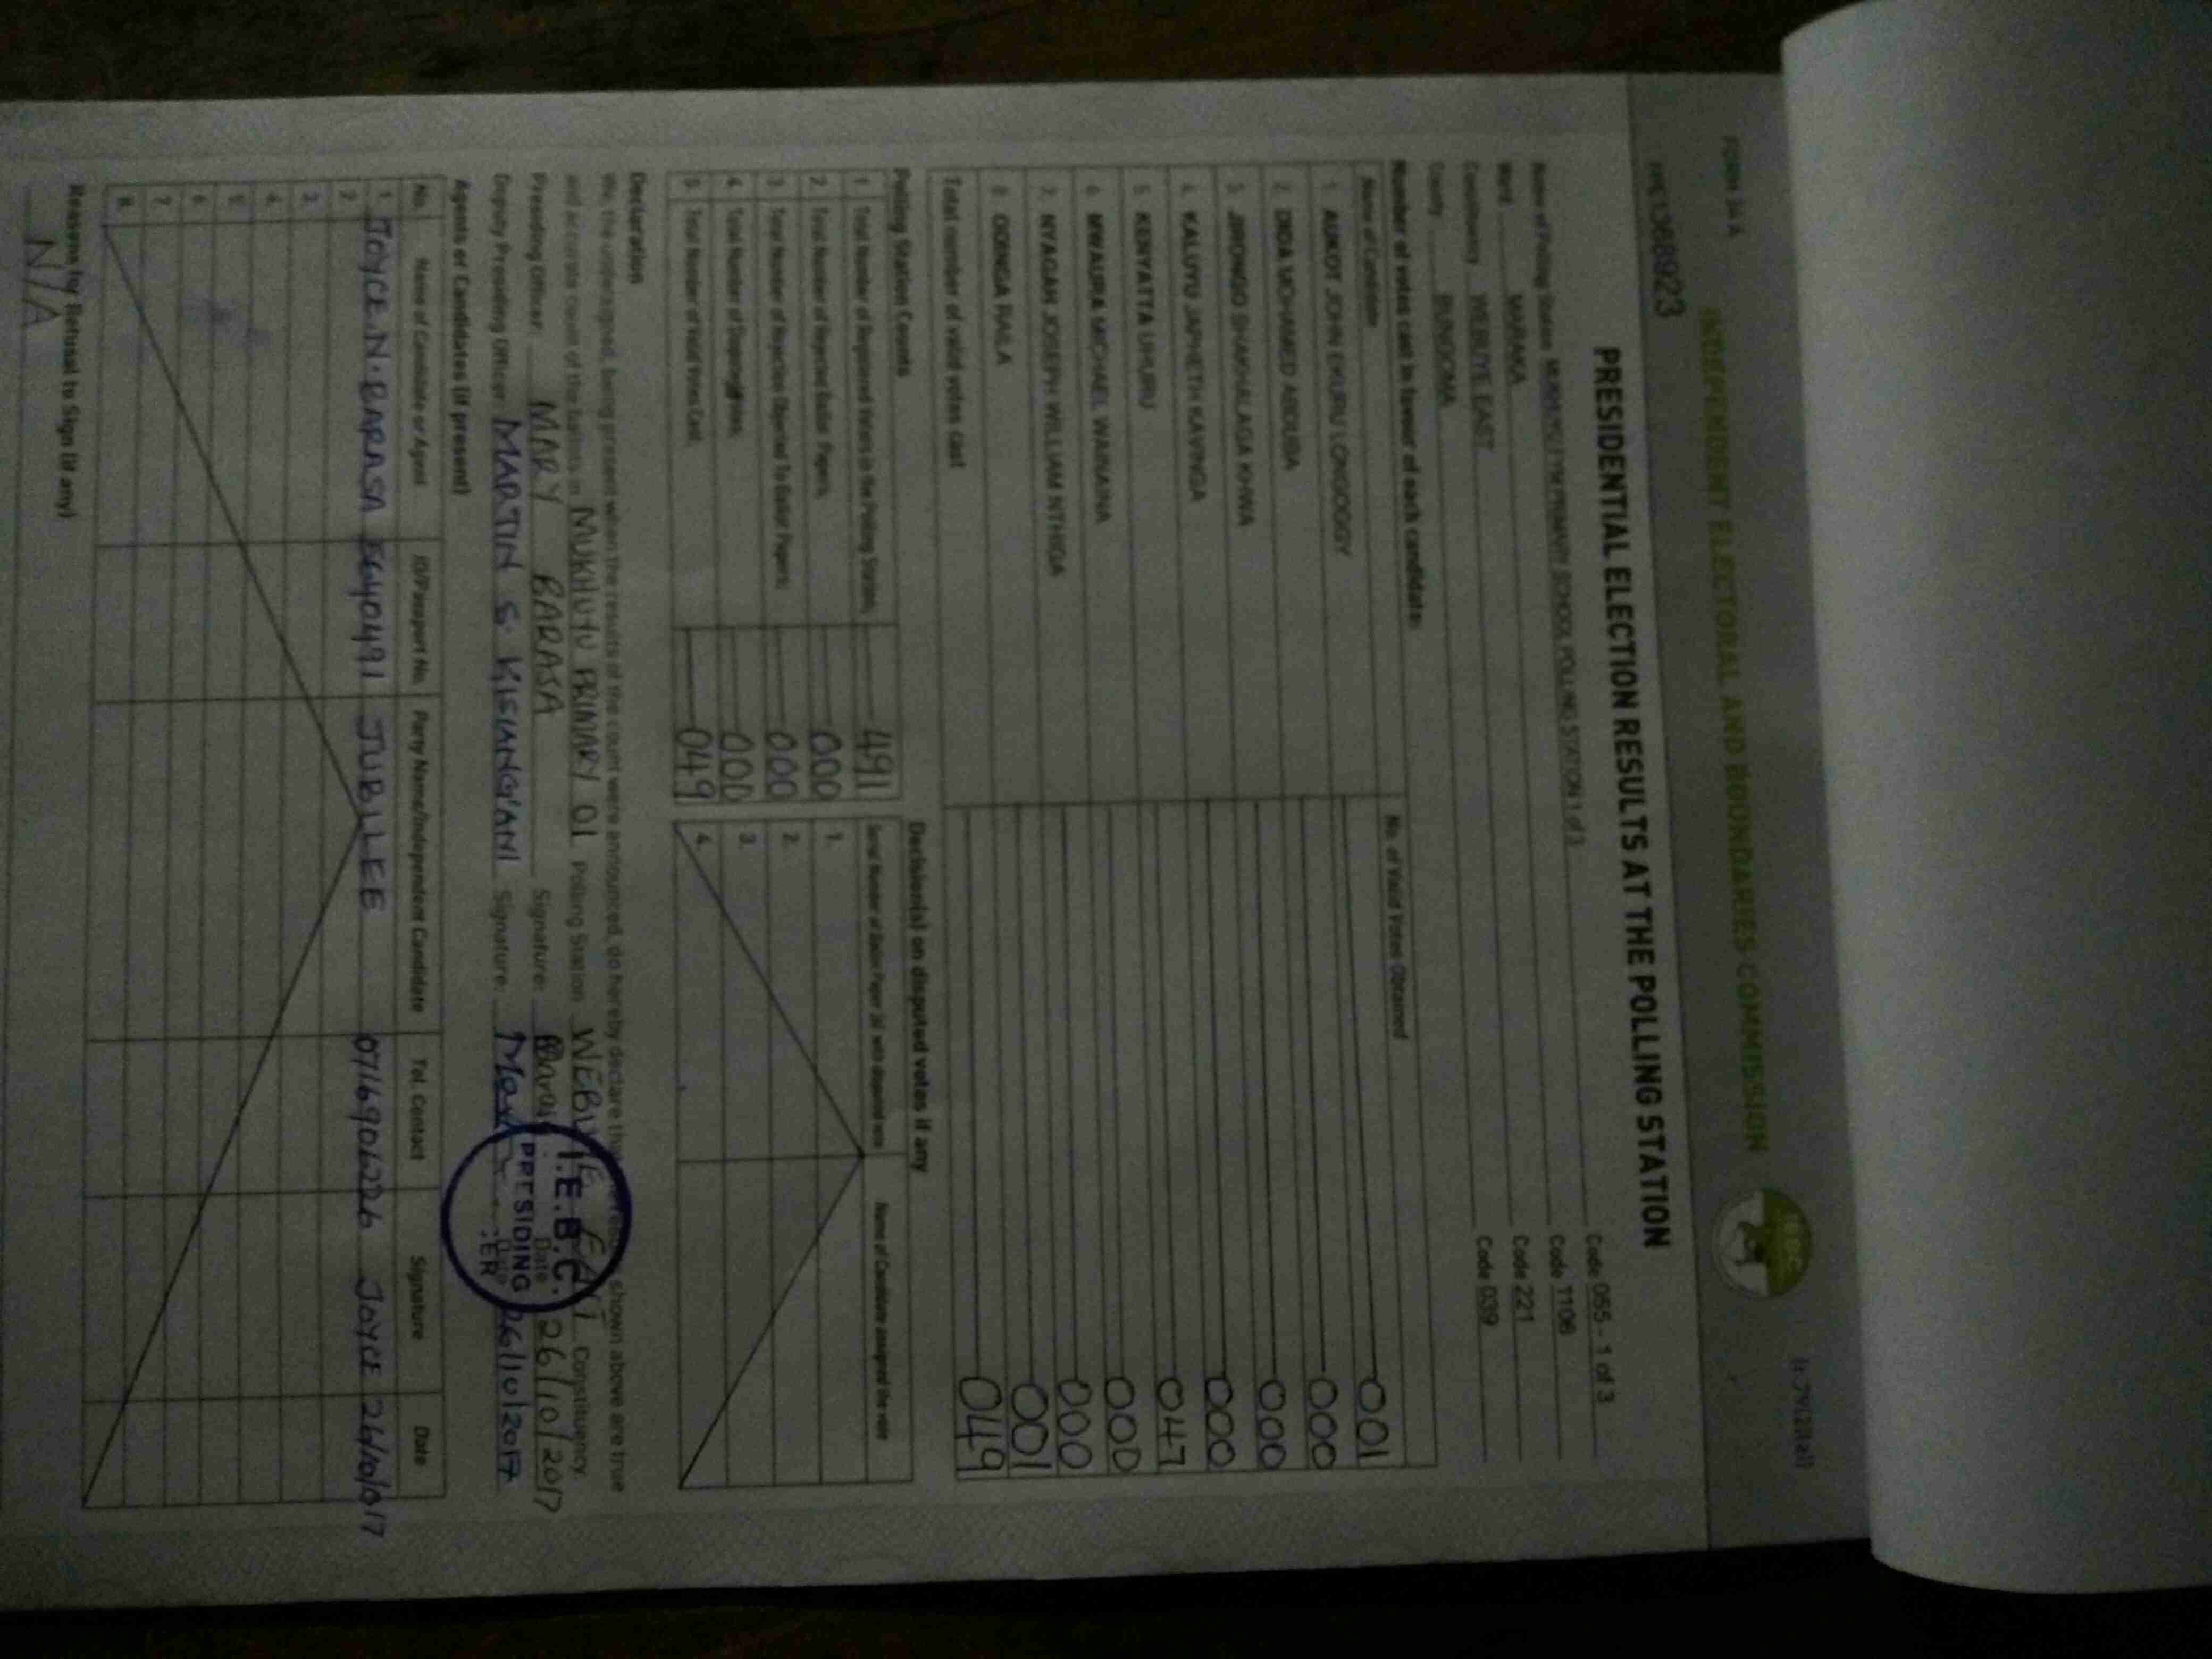 FORM 34 A
INDEPENDENT ELECTORAL AND BOUNDARIES COMMISSION
IEBC
PRESIDENTIAL ELECTION RESULTS AT THE POLLING STATION
Name of Polling Station MUKHUYU FYM PRIMARY SCHOOL POLLING STATION 1 of 3 Code 055 - 1 of 3
Ward MARAKA Code 1106
Constituency WEBUYE EAST Code 221
County BUNGOMA Code 039
Number of votes cast in favour of each candidate:
Name of Candidate No. of Valid Votes Obtained
1. AUKOT JOHN EKURU LONGOGGY 001
2. DIDA MOHAMED ABDUBA 000
3. JIRONGO SHAKHALAGA KHWA 000
4. KALUYU JAPHETH KAVINGA 000
5. KENYATTA UHURU 047
6. MWAURA MICHAEL WAINAINA 000
7. NYAGAH JOSEPH WILLIAM NTHIGA 000
8. ODINGA RAILA 001
Total number of valid votes cast 049
Polling Station Counts
1. Total Number of Registered Voters in the Polling Station 491
2. Total Number of Rejected Ballot Papers 000
3. Total Number of Rejection Objected To Ballot Papers 000
4. Total Number of Disputed Votes 000
5. Total Number of Valid Votes Cast 049
Decision(s) on disputed votes if any
Name of Candidate assigned the vote
1.
2.
3.
4.
Declaration
We, the undersigned, being present when the results of the count were announced, do hereby declare that shown above are true
and accurate count of the ballots in MUKHUYU PRIMARY 01 Polling Station WEBUYE EAST Constituency.
Presiding Officer: MARY BARASA Signature: Date 26/10/2017
Deputy Presiding Officer: MARTIN S. KISIANG'ANI Signature: Date 26/10/2017
I.E.B.C.
PRESIDING
Agents or Candidates (if present)
No. Name of Candidate or Agent ID/Passport No. Party Name/Independent Candidate Tel. Contact Signature Date
1. JOYCE.N.BARASA JUBILEE 0716906226 JOYCE
2.
3.
4.
5.
6.
7.
8.
Reasons for Refusal to Sign (if any)
N/A